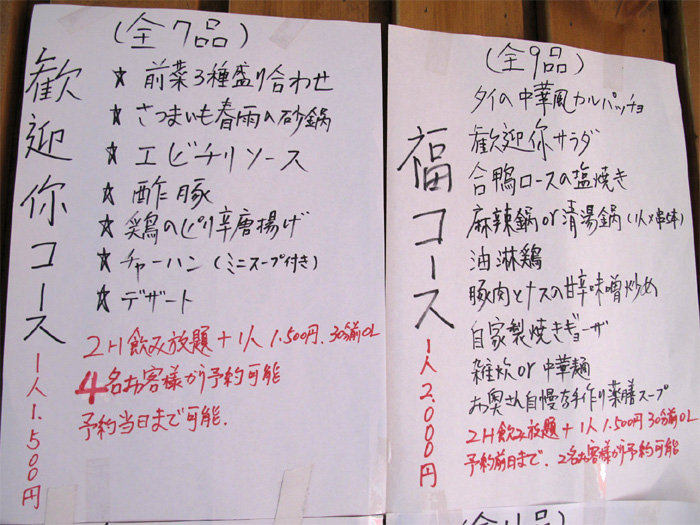 (全7品)
歓迎你コース
1人1.500円
★ 前菜3種盛り合わせ
★ さつまいも春雨の砂鍋
★ エビチリソース
★ 酢豚
★ 鶏のピリ辛唐揚げ
★ チャーハン (ミニスープ付き)
★ デザート
2H飲み放題+1人1.500円、30分前OL
4名お客様が予約可能
予約当日まで可能.
(全9品)
福コース
1人2.000円
タイの中華風カルパッチョ
歓迎你サラダ
合鴨ロースの塩焼き
麻辣鍋or清湯鍋(1人×串5本)
油淋鶏
豚肉とナスの甘辛味噌炒め
自家製焼きギョーザ
雑炊or中華麺
お奥さん自慢な手作り薬膳スープ
2H飲み放題+1人1.500円30分前OL
予約前日まで、2名お客様が予約可能